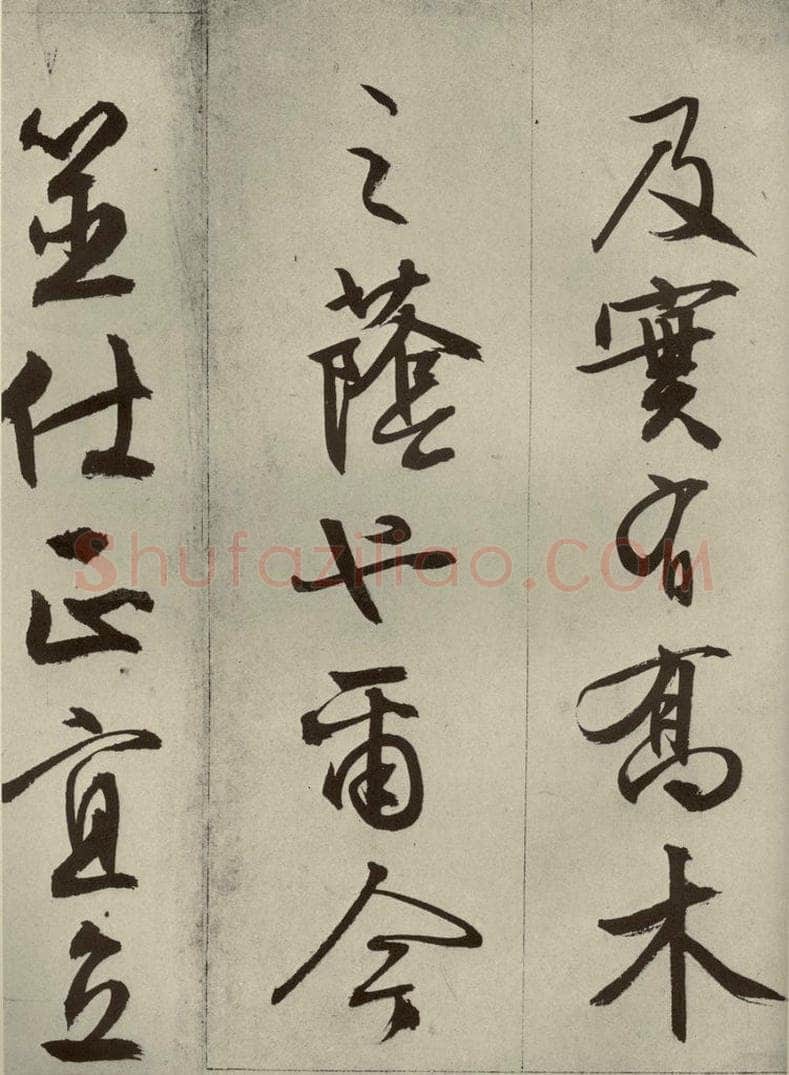 及實有高木
之蔭也爾今
筮仕正宜立
Shufaziliao.COM